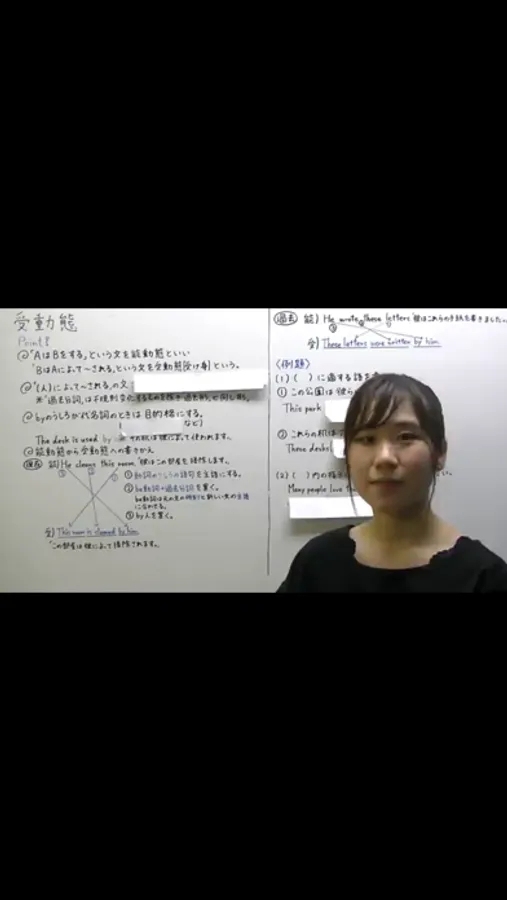 受動態
Point!
◎「AはBをする」という文を能動態といい
「BはAによって〜される」という文を受動態(受け身)という。
◎「(人)によって〜される」の文
※「過去分詞」は不規則変化するもの
◎byのうしろが代名詞のときは目的格にする。
など)
The desk is used by
◎能動態から受動態への書きかえ
現在 能) He cleans this room. 「彼はこの部屋を掃除します。
① ② ③
①動詞のうしろの語句を主語にする。
②be動詞+過去分詞を置く。
be動詞は元の文の時制と新しい文の主語
に合わせる。
③by人を置く。
受) This room is cleaned by him.
「この部屋は彼によって掃除されます。
過去 能) He wrote these letters 「彼はこれらの手紙を書きました。
受) These letters were written by him.
〈例題〉
(1) ( )に適する語を
① この公園は彼ら
This park
② これらの机は
These desks
(2) ( )内の指示
Many people love
い。